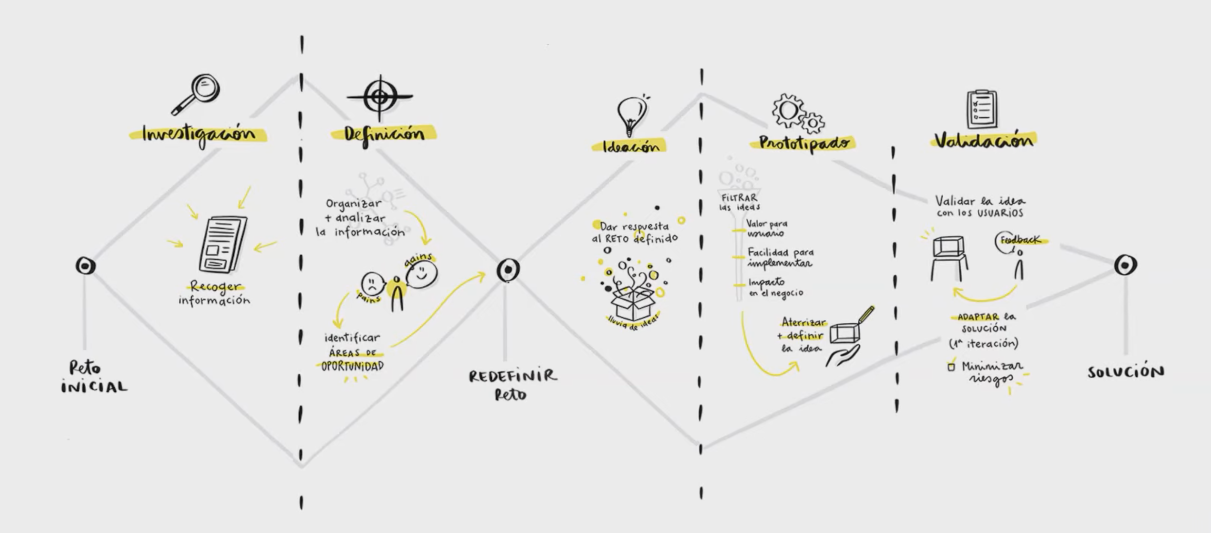 Investigación
Recoger
información
Reto
INICIAL
Definición
Organizar
+ analizar
la información
gains
pains
identificar
ÁREAS DE
OPORTUNIDAD
REDEFINIR
Reto
Ideación
Dar respuesta
al RETO definido
lluvia de ideas
Prototipado
FILTRAR
las ideas
Valor para
usuario
Facilidad para
implementar
Impacto
en el negocio
Aterrizar
+ definir
la idea
Validación
Validar la idea
con los USUARIOS
Feedback
ADAPTAR la
SOLUCIÓN
(1ª iteración)
Minimizar
riesgos
SOLUCIÓN